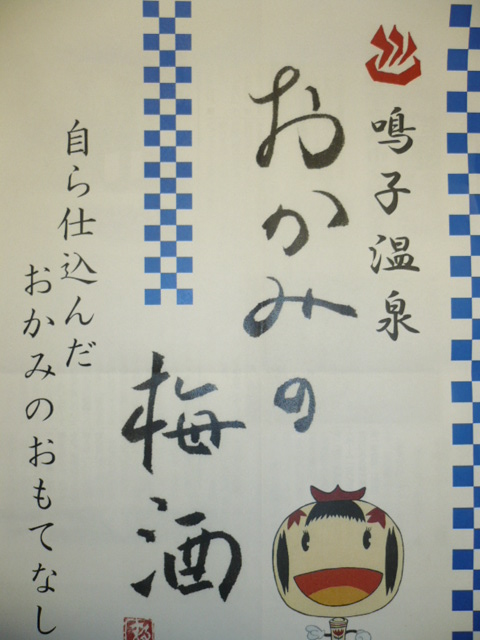 鳴子温泉
おかみの
梅酒
自ら仕込んだ
おかみのおもてなし